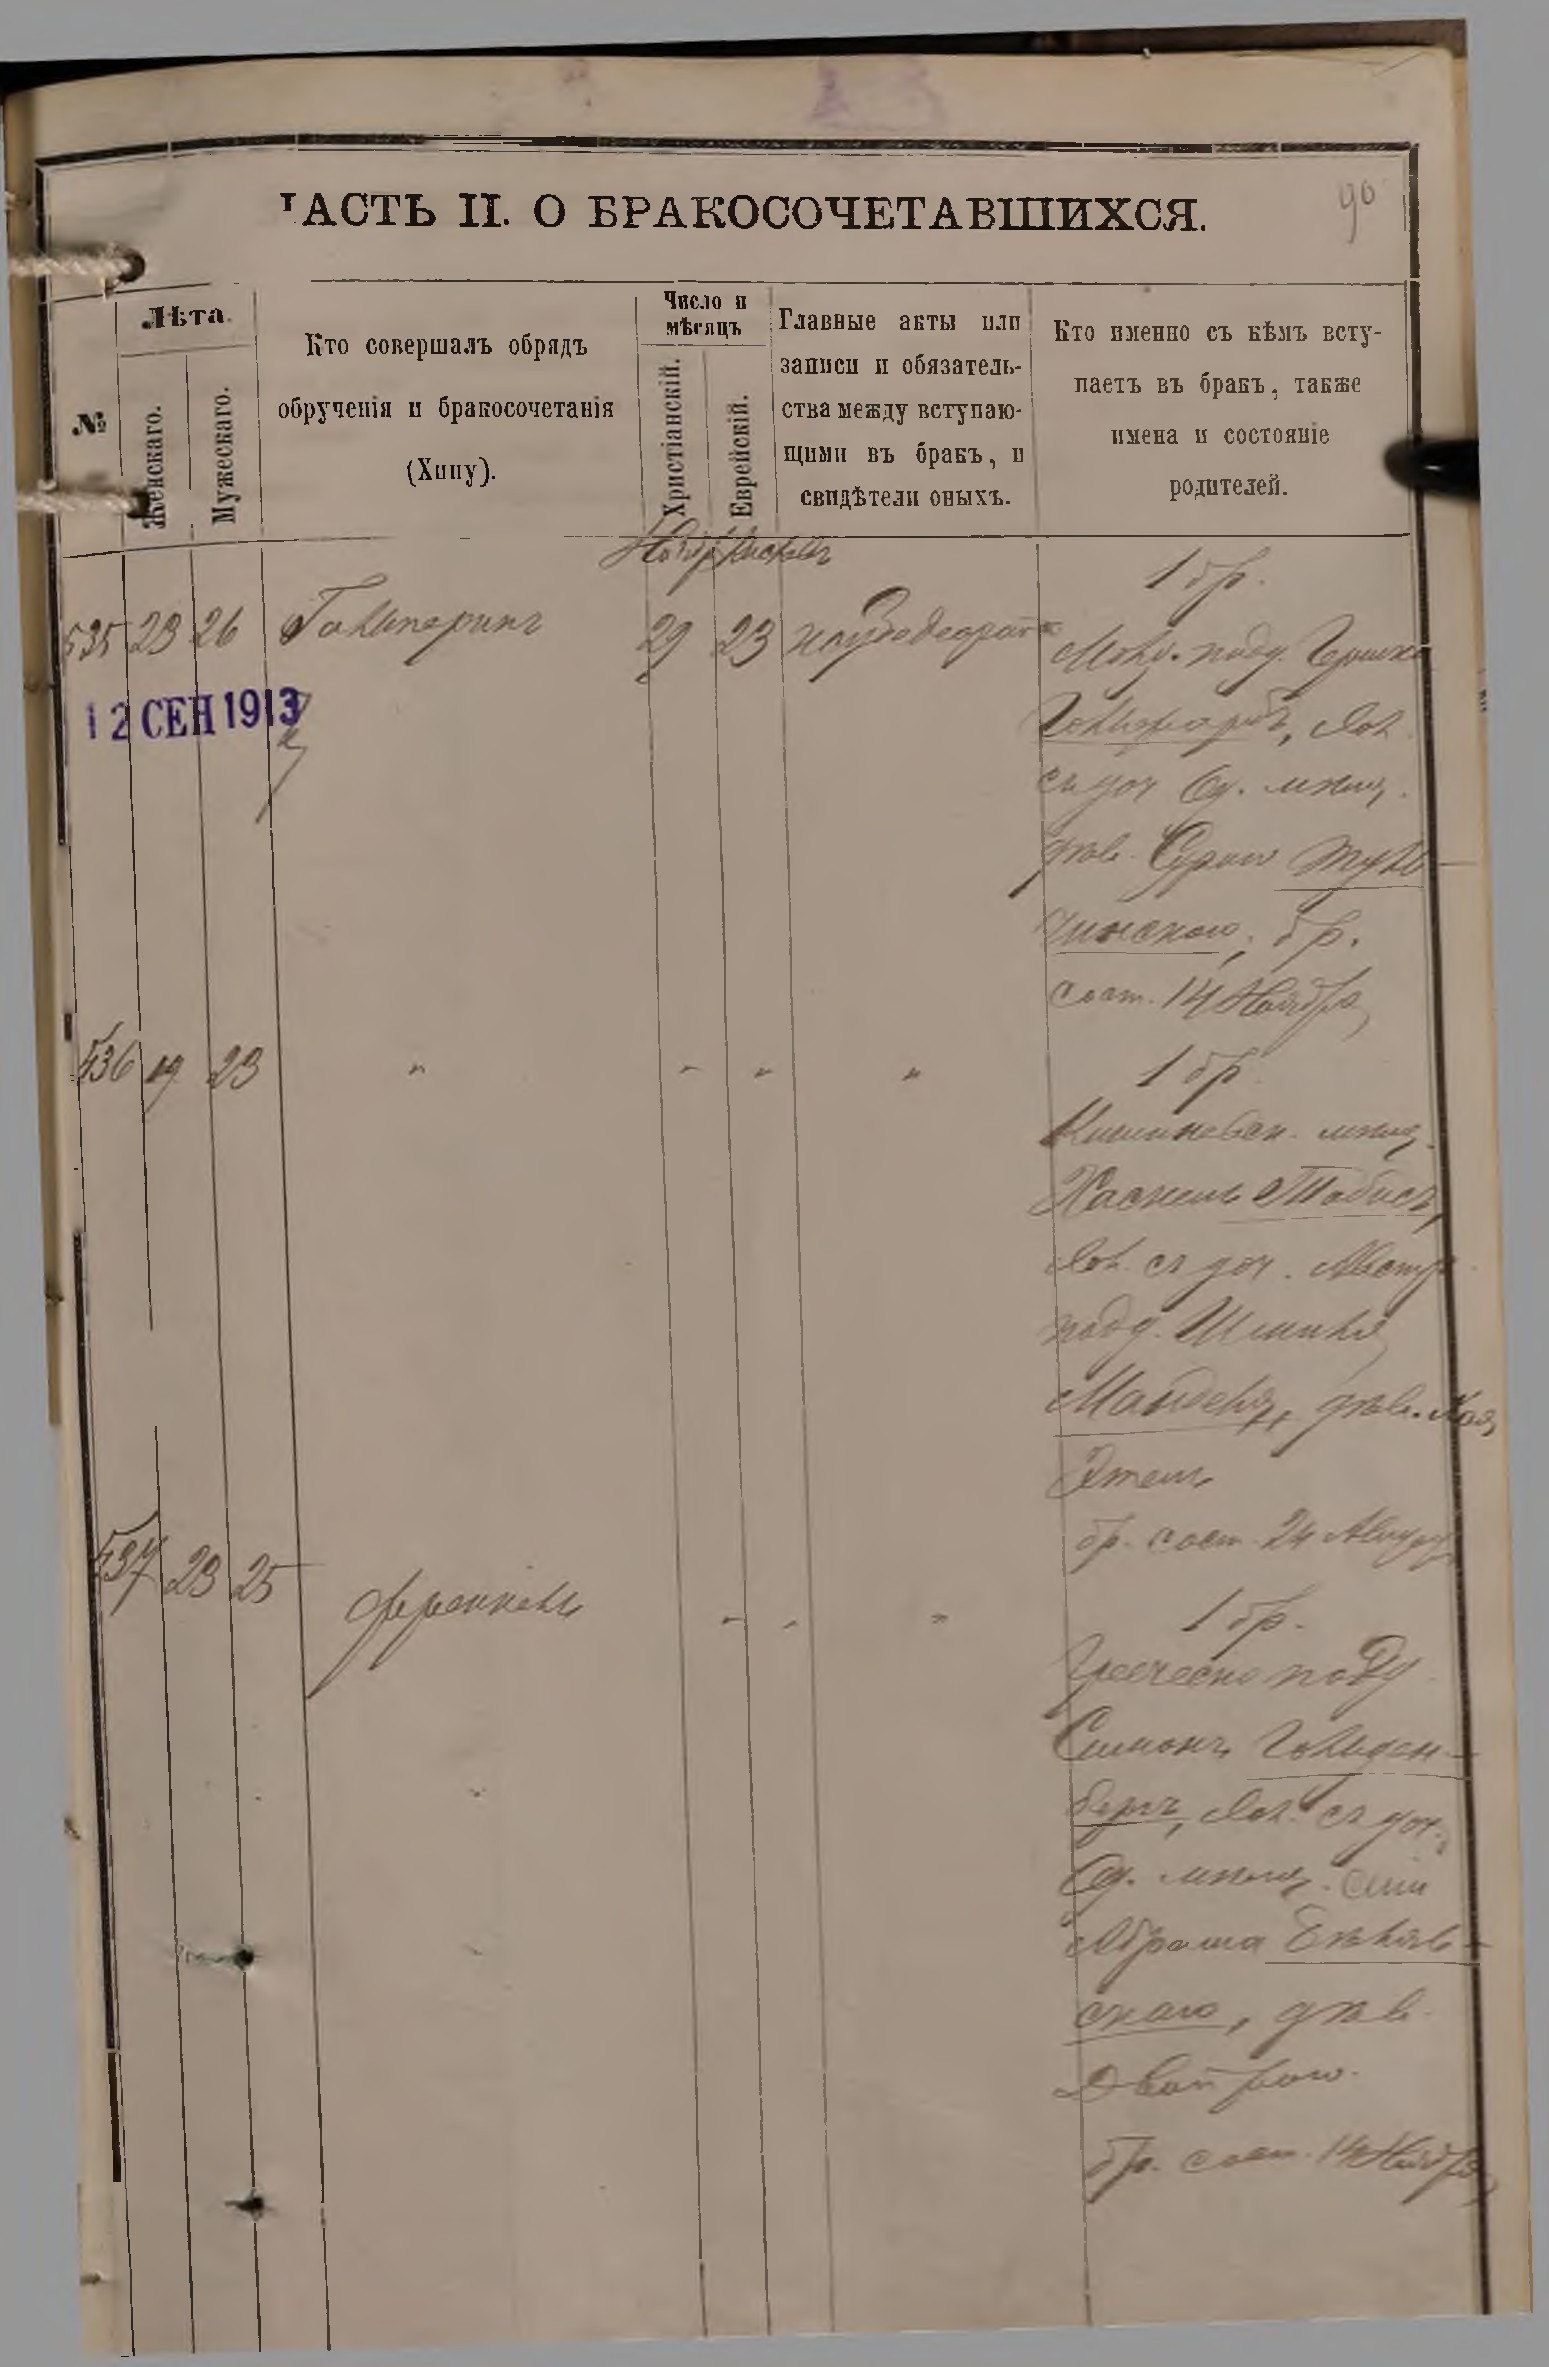 ЧАСТЬ II. О БРАКОСОЧЕТАВШИХСЯ.
90
№
Лѣта.
Женскаго.
Мужескаго.
Кто совершалъ обрядъ
обрученія и бракосочетанія
(Хипу).
Число и
мѣсяцъ
Христіанскій.
Еврейскій.
Главные акты или
записи и обязатель-
ства между вступаю-
щими въ бракъ, и
свидѣтели оныхъ.
Кто именно съ кѣмъ всту-
паетъ въ бракъ, также
имена и состояніе
родителей.
Ноябр Кислевъ
535 23 26 Гальперинъ 29 23
1 бр.
подд. Гершко
12 СЕН 1913
хол.
съ доч Од. мѣщ.
дѣв. Сурою Туль-
чинскою, бр.
сост. 14 Ноября
536 19 23 " " " "
1 бр.
Кишиневск. мѣщ.
Хаскель Табисъ,
хол. съ доч. Австр.
подд. Шмиля
Манделя, дѣв. Хая
Этель
бр. сост. 24 Август
537 23 25 Френкель " " "
1 бр.
Греческо подд.
Симонъ Гольден-
бергъ, хол. съ доч.
Од. мѣщ.
Абрама
скаго, дѣв.
Двойрою.
бр. сост. 14 Ноября